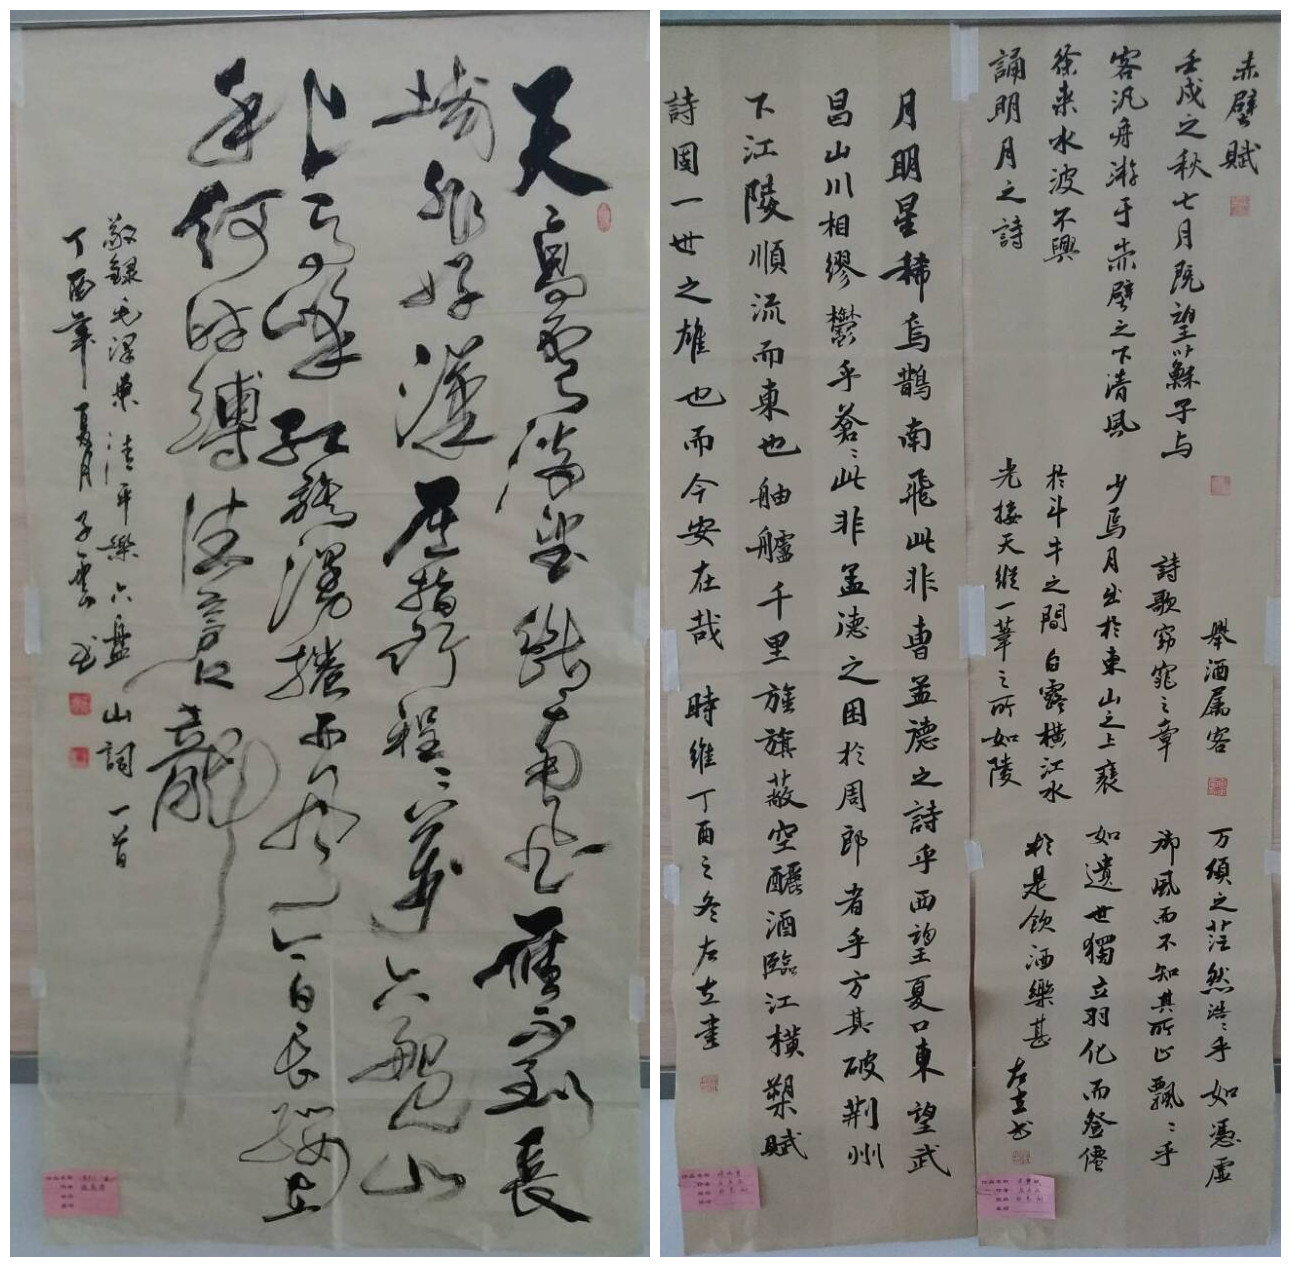 天高雲淡望斷南飛雁不到長
城非好漢屈指行程二萬六盤山
上高峰紅旗漫捲西風今日長纓在
手何時縛住蒼龍
敬錄毛澤東清平樂六盤山詞一首
丁酉年夏月子雲書
赤壁賦
壬戌之秋七月既望蘇子与
客汎舟游于赤壁之下清風
徐来水波不興
誦明月之詩
舉酒属客
詩歌窈窕之章
少焉月出於東山之上裵
於斗牛之間白露橫江水
光接天縱一葦之所如陵
万頃之茫然浩〻乎如憑虛
御風而不知其所止飄〻乎
如遺世獨立羽化而登僊
於是飲酒樂甚
左立書
月明星稀烏鵲南飛此非曹孟德之詩乎西望夏口東望武
昌山川相繆鬱乎蒼〻此非孟德之困於周郎者乎方其破荆州
下江陵順流而東也舳艫千里旌旗蔽空釃酒臨江橫槊賦
詩固一世之雄也而今安在哉 時維丁酉之冬左立書